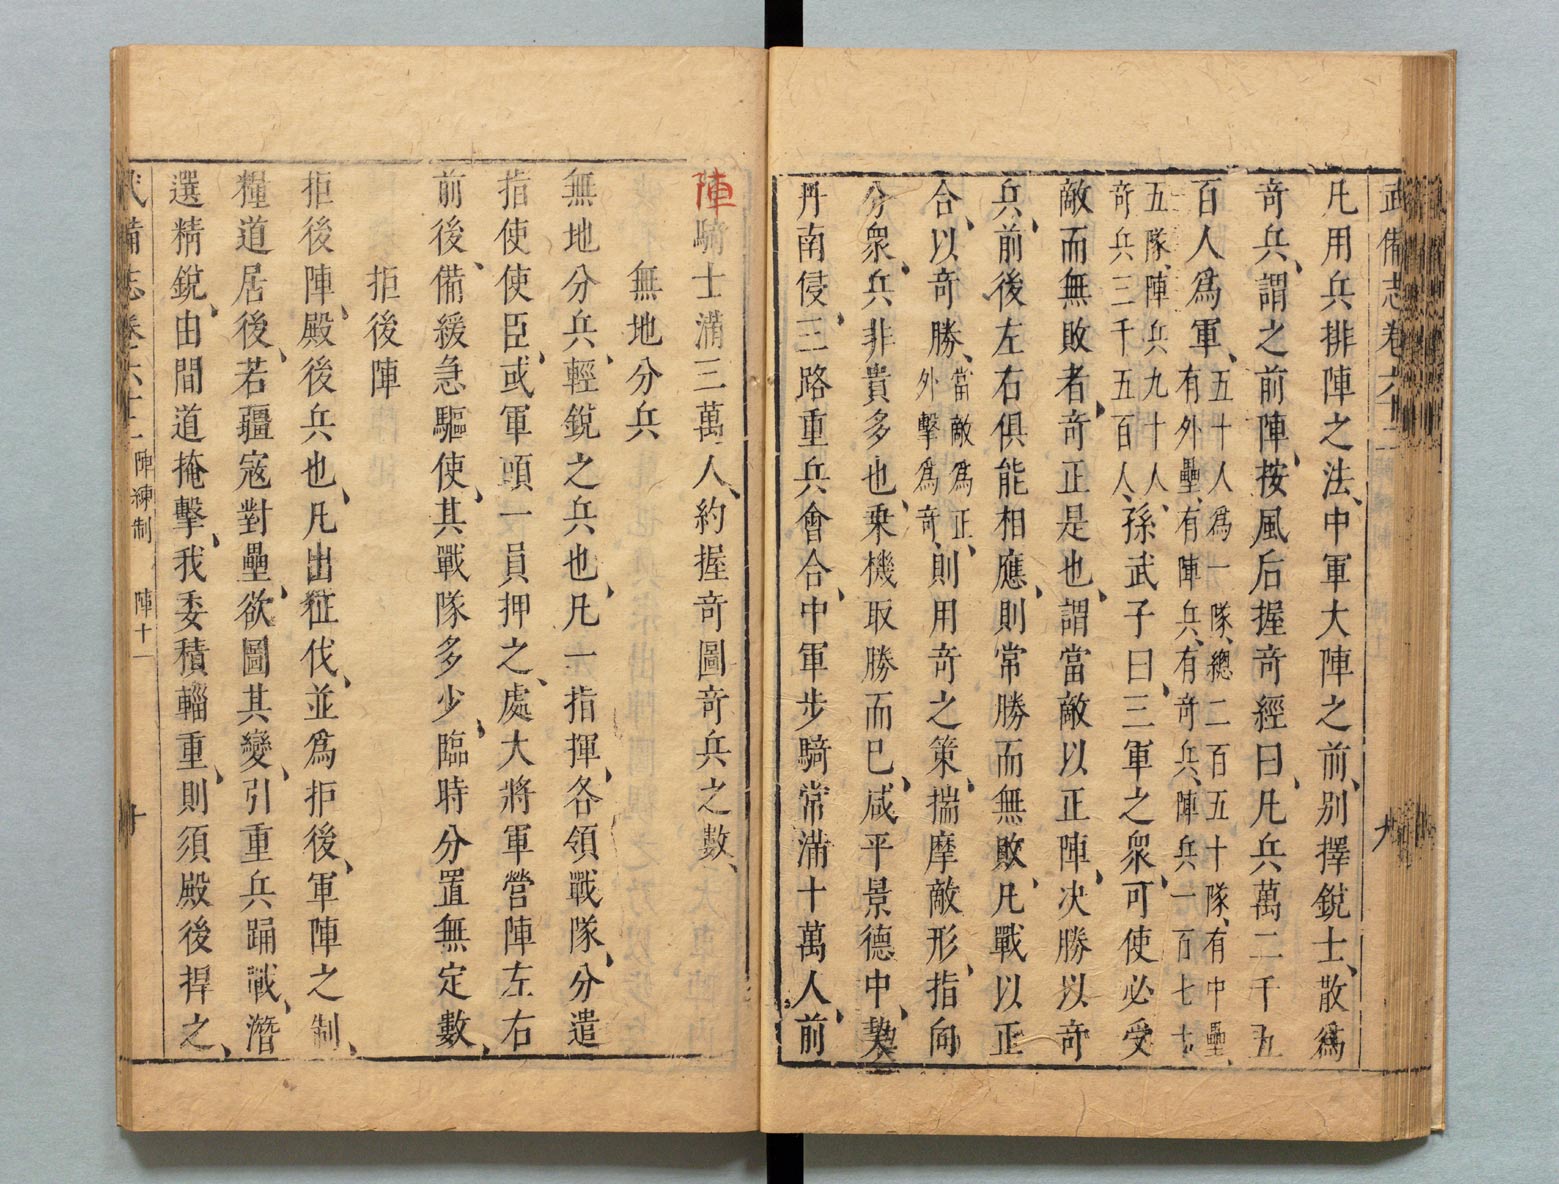 武備志卷六十二
九
凡用兵排陣之法、中軍大陣之前、別擇銳士、散爲
奇兵、謂之前陣、按風后握奇經曰、凡兵萬二千五
百人爲軍、五十人爲一隊、總二百五十隊、有中壘、
有外壘、有陣兵、有奇兵、陣兵一百七十
五隊、陣兵九十人、
奇兵三千五百人、孫武子曰、三軍之衆、可使必受
敵而無敗者、奇正是也、謂當敵以正陣、决勝以奇
兵、前後左右俱能相應、則常勝而無敗、凡戰以正
合、以奇勝、當敵爲正、
外擊爲奇、則用奇之策、揣摩敵形、指向
分衆、兵非貴多也、乗機取勝而已、咸平景德中、契
丹南侵、三路重兵會合、中軍步騎常滿十萬人、前
陣騎士滿三萬人、約握奇圖奇兵之數、
無地分兵
無地分兵、輕銳之兵也、凡一指揮、各領戰隊、分遣
指使使臣、或軍頭一員押之、處大將軍營陣左右
前後、備緩急驅使、其戰隊多少、臨時分置無定數、
拒後陣
拒後陣、殿後兵也、凡出征伐、並爲拒後、軍陣之制、
糧道居後、若疆寇對壘、欲圖其變、引重兵踊戰、潛
選精銳、由間道掩擊、我委積輜重、則須殿後捍之、
武備志卷六十二 陣練制 陣十一
十